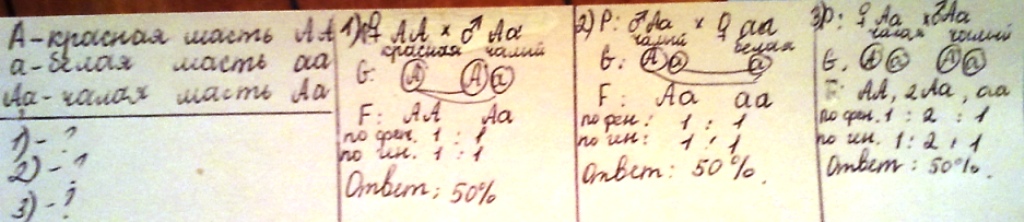 А-красная масть АА
а-белая масть аа
Аа-чалая масть Аа
1) - ?
2) - ?
3) - ?
1) P ♀ АА × ♂ Аа
красная чалый
G: А А а
F: АА Аа
по фен. 1 : 1
по ген. 1 : 1
Ответ: 50%
2) P: ♂ Аа × ♀ аа
чалый белая
G: А а а
F: Аа аа
по фен: 1 : 1
по ген: 1 : 1
Ответ: 50%.
3) P: ♀ Аа × ♂ Аа
чалая чалый
G. А а А а
F: АА, 2Аа, аа
по фен. 1 : 2 : 1
по ген. 1 : 2 : 1
Ответ: 50%.